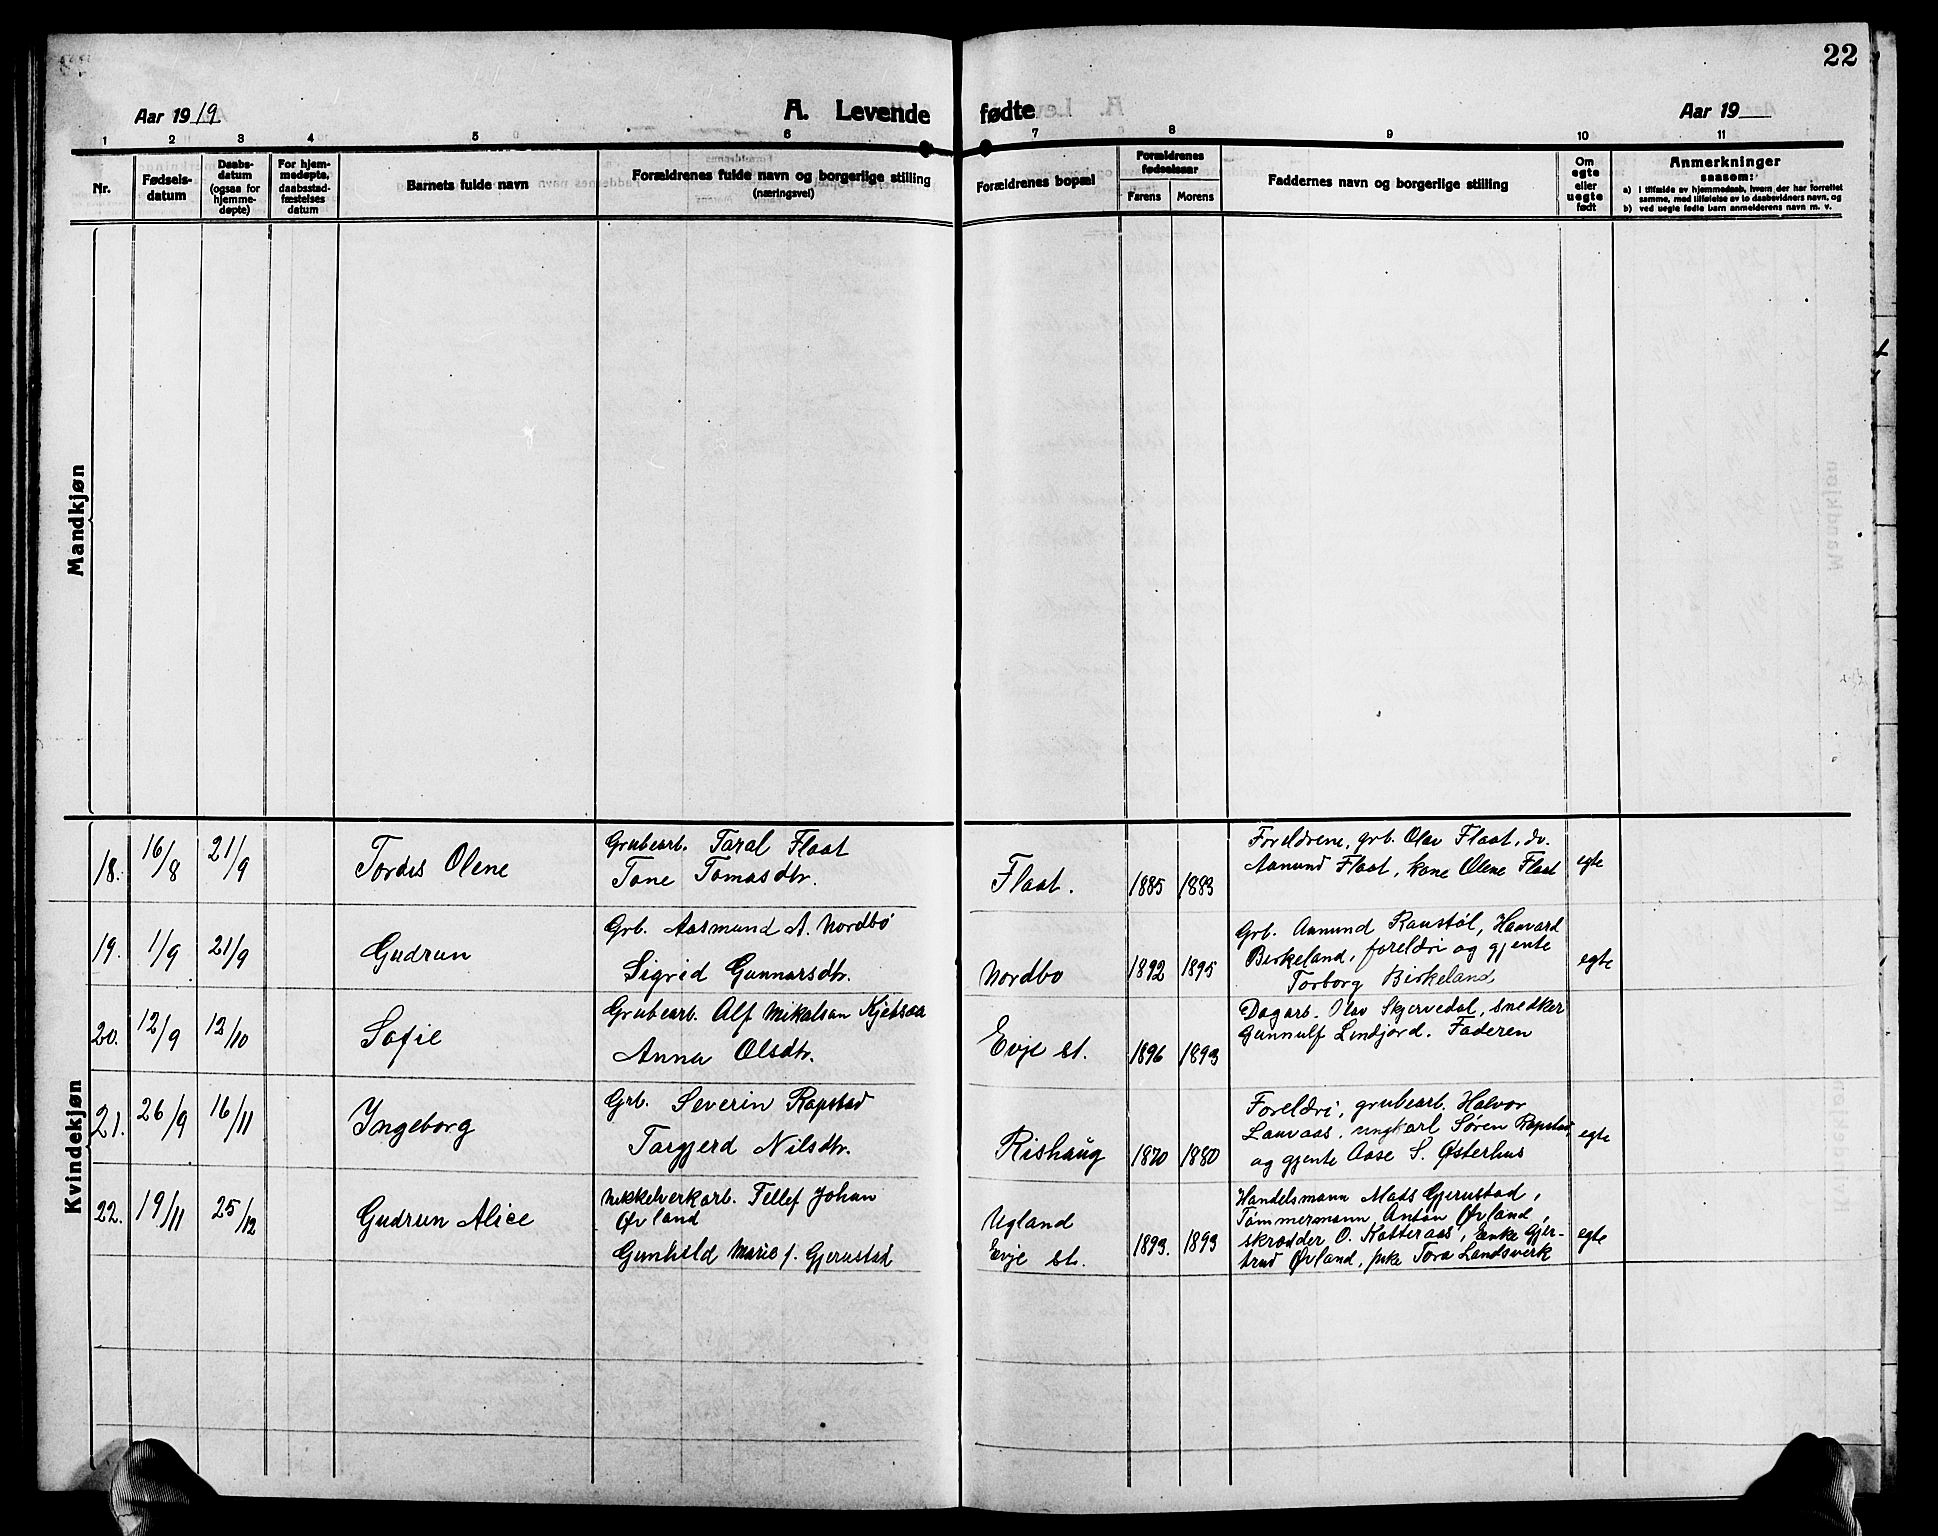 22
Aar 1919
A. Levende fødte
Aar 19
1 2 3 4 5 6 7 8 9 10 11
Nr.
Fødsels-
datum
Daabs-
datum
(ogsaa for
hjemme-
døpte)
For hjem-
medøpte,
daabsstad-
fæstelses
datum
Barnets fulde navn
Forældrenes fulde navn og borgerlige stilling
(næringsvei)
Forældrenes bopæl
Forældrenes
fødselsaar
Farens Morens
Faddernes navn og borgerlige stilling
Om
egte
eller
uegte
født
Anmerkninger
saasom:
a) i tilfælde av hjemmedaab, hvem der har forrettet
samme, med tilføielse av to daabsvidners navn, og
b) ved uegte fødte barn anmelderens navn m. v.
Mandkjøn
Kvindekjøn
18. 16/8 21/9
Tordis Olene
Grubearb. Taral Flaat
Tone Tomasdtr.
Flaat.
1885 1883
Foreldrene, grb. Olav Flaat, do.
Aanund Flaat, kone Olene Flaat
egte
19. 1/9 21/9
Gudrun
Grb. Aasmund A. Nordbø
Sigrid Gunnarsdtr.
Nordbo
1892 1895
Grb. Aanund Raustøl, Haavard
Birkeland, foreldri og gjente
Torborg Birkeland
egte
20. 12/9 12/10
Sofie
Grubearb. Alf Mikalsan Kjetsaa
Anna Olsdtr.
Evje st.
1896 1893
Dagarb. Olav Skjervedal, smedker
Gunnulf Lindjord. Faderen
21. 26/9 16/11
Ingeborg
Grb. Severin Rapstad
Targjerd Nilsdtr.
Rishaug
1870 1880
Foreldri, grubearb. Halvor
Lauvaas, ungkarl Søren Rapstad
og gjente Aase S. Østerhus
egte
22. 19/11 25/12
Gudrun Alice
Nikkelverkarb. Tellef Johan
Øvland
Gunhild Marie f. Gjerustad
Ugland
Evje st.
1893. 1893
Handelsmann Mads Gjerustad,
Tømmermann Anton Øvland,
skrædder O. Katteraas, Enke Gjer-
trud Øvland, pike Tora Landsverk
egte